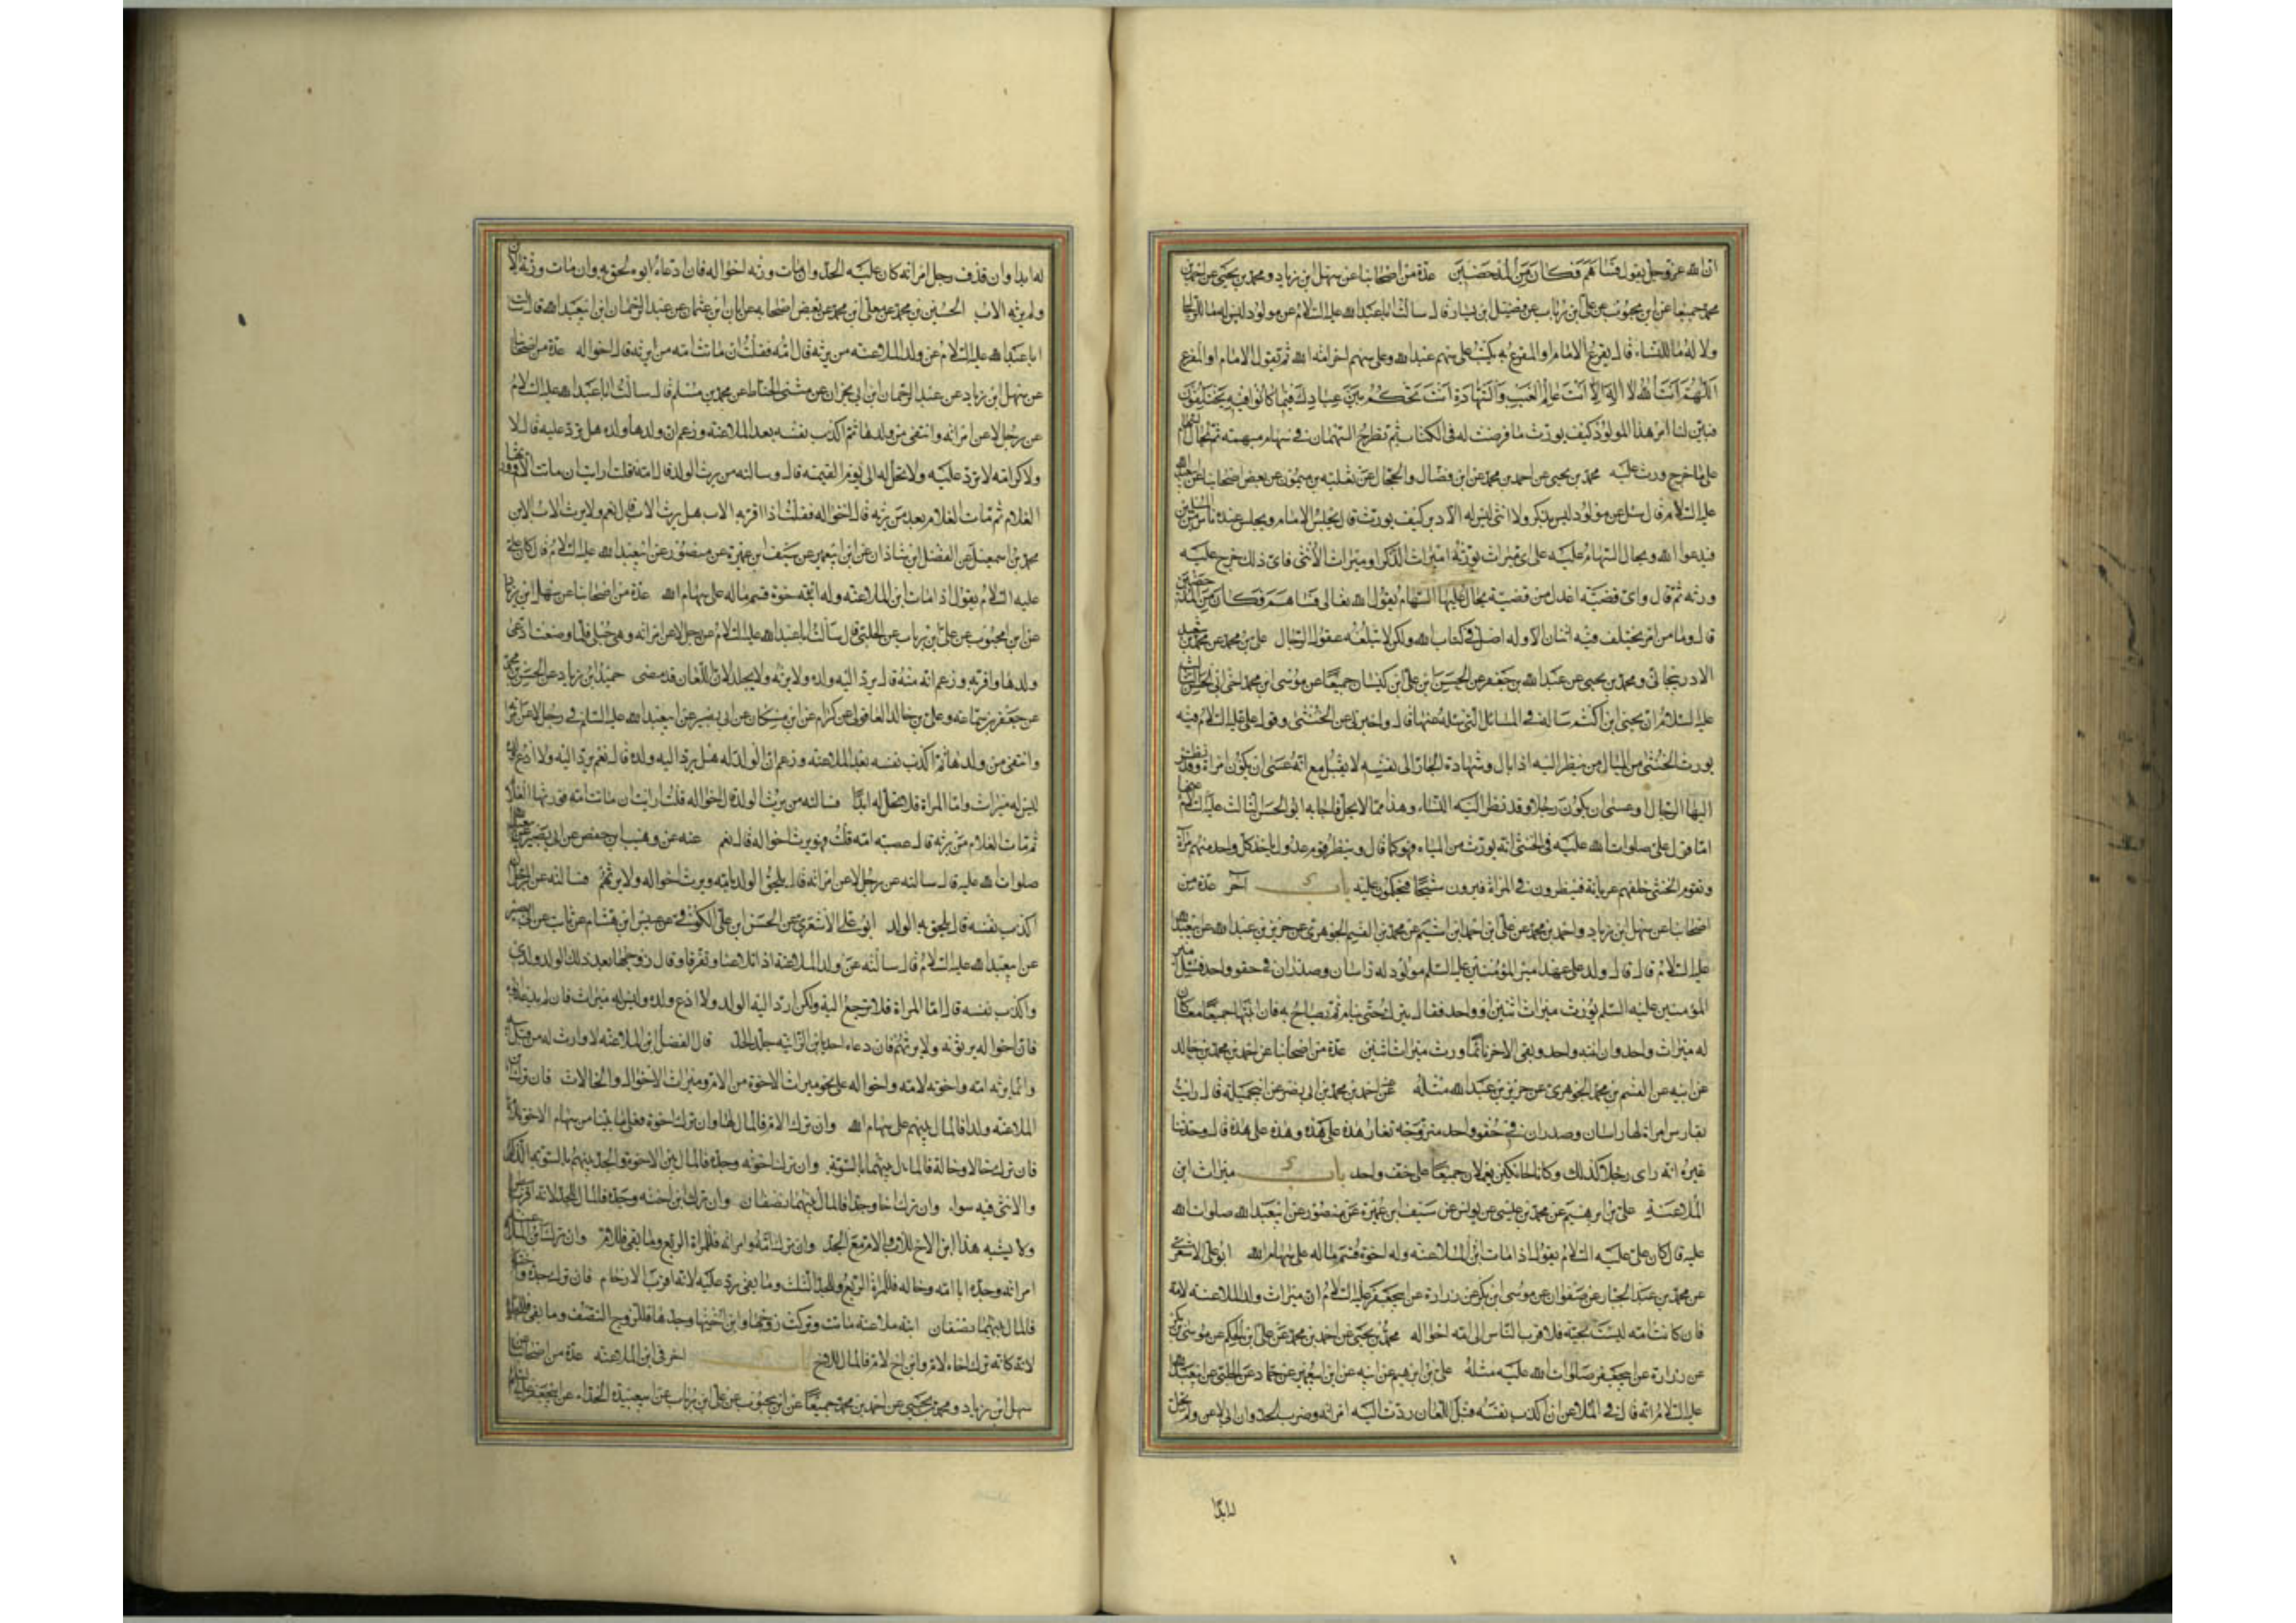 ان الله عز وجل يقول فساهم فكان من المدحضين عدة من اصحابنا عن سهل ابن زياد ومحمد بن يحيى عن احمد بن
محمد جميعا عن ابن محبوب عن علي ابن رئاب عن فضيل ابن يسار قال سالت ابا عبد الله عليه السلام عن مولود ليس له ما للرجال
ولا له ما للنساء قال يقرع الامام او المقرع به يكتب على سهم عبد الله وعلى سهم اخر امة الله ثم يقول الامام او المقرع
اللهم انت الله لا اله الا انت عالم الغيب والشهادة انت تحكم بين عبادك فيما كانوا فيه يختلفون
فبين لنا امر هذا المولود كيف يورث ما فرضت له في الكتاب ثم تطرح السهمان في سهام مبهمة ثم تجال السهام
على ما خرج ورث عليه محمد بن يحيى عن احمد بن محمد عن ابن فضال والحجال عن ثعلبة بن ميمون عن بعض اصحابنا عن ابي عبد الله
عليه السلام قال سئل عن مولود ليس بذكر ولا انثى ليس له الا دبر كيف يورث قال يجلس الامام ويجلس عنده ناس من المسلمين
فيدعوا الله ويجال السهام عليه على اي ميراث يورثه اميراث الذكر او ميراث الانثى فاي ذلك خرج عليه
ورثه ثم قال واي قضية اعدل من قضية يجال عليها السهام يقول الله تعالى فساهم فكان من المدحضين
قال وما من امر يختلف فيه اثنان الا وله اصل في كتاب الله ولكن لا تبلغه عقول الرجال علي بن محمد عن محمد بن سعيد
الادربيجاني ومحمد بن يحيى عن عبد الله بن جعفر عن الحسن ابن علي ابن كيسان جميعا عن موسى ابن محمد اخي ابي الحسن الثالث
عليه السلام ان يحيى ابن اكثم ساله في المسائل التي سئله عنها قال واخبرني عن الخنثى وقول علي عليه السلام فيه
يورث الخنثى من المبال من ينظر اليه اذا بال وشهادة الجار الى نفسه لا يقبل مع انه عسى ان يكون امراة وقد نظر
اليها الرجال او عسى ان يكون رجلا وقد نظر اليه النساء وهذا مما لا يحل فاجابه ابو الحسن الثالث عليه السلام عنها
اما قول علي صلوات الله عليه في الخنثى انه يورث من المبال فهو كما قال وينظر قوم عدول ياخذ كل واحد منهم مرآة
وتقوم الخنثى خلفهم عريانة فينظرون في المراة فيرون شبحا فيحكمون عليه باب آخر عدة من
اصحابنا عن سهل ابن زياد واحمد بن محمد عن علي ابن احمد ابن اشيم عن محمد بن القسم الجوهري عن حريز بن عبد الله عن ابي عبد الله
عليه السلام قال قال ولد على عهد امير المؤمنين عليه السلم مولود له راسان وصدران في حقو واحد فسئل امير
المؤمنين عليه السلم يورث ميراث اثنين او واحد فقال يترك حتى ينام ثم يصاح به فان انتبها جميعا معا كان
له ميراث واحد وان انتبه واحد وبقي الاخر نائما ورث ميراث اثنين عدة من اصحابنا عن احمد بن محمد بن خالد
عن ابيه عن القسم بن محمد الجوهري عن حريز بن عبد الله مثله عن احمد بن محمد بن ابي نصر عن ابي جميلة قال رايت
بفارس امراة لها راسان وصدران في حقو واحد متزوجة تغار هذه على هذه وهذه على هذه قال وحدثنا
غيره انه راى رجلا كذلك وكانا حائكين يعملان جميعا على حف واحد باب ميراث ابن
الملاعنة علي بن ابرهيم عن محمد بن عيسى عن يونس عن سيف ابن عميرة عن منصور عن ابي عبد الله صلوات الله
عليه قال كان علي عليه السلام يقول اذا مات ابن الملاعنة وله اخوة قسم ماله على سهام الله ابو علي الاشعري
عن محمد بن عبد الجبار عن صفوان عن موسى ابن بكر عن زرارة عن ابي جعفر عليه السلام ان ميراث ولد الملاعنة لامه
فان كانت امه ليست بحية فلاقرب الناس الى امه اخواله محمد بن يحيى عن احمد بن محمد عن علي ابن الحكم عن موسى بن بكر
عن زرارة عن ابي جعفر صلوات الله عليه مثله علي بن ابرهيم عن ابيه عن ابن ابي عمير عن حماد عن الحلبي عن ابي عبد الله
عليه السلام انه قال في الملاعن ان اكذب نفسه قبل اللعان ردت اليه امراته وضرب الحد وان ابى لاعن ولم تحل
له ابدا
له ابدا وان قذف رجل امراته كان عليه الحد وان مات ورثه اخواله فان ادعاه ابوه لحق به وان مات ورثه الابن
ولم يرثه الاب الحسين بن محمد عن معلى ابن محمد عن بعض اصحابه عن ابان ابن عثمان عن عبد الرحمان ابن ابي عبد الله قال سالت
ابا عبد الله عليه السلام عن ولد الملاعنة من يرثه قال امه فقلت ان ماتت امه من يرثه قال اخواله عدة من اصحابنا
عن سهل ابن زياد عن عبد الرحمان ابن ابي نجران عن مثنى الحناط عن محمد بن مسلم قال سالت ابا عبد الله عليه السلام
عن رجل لاعن امراته وانتفى من ولدها ثم اكذب نفسه بعد الملاعنة وزعم ان ولدها ولده هل ترد عليه قال لا
ولا كرامة لا ترد عليه ولا تحل له الى يوم القيمة قال وسالته من يرث الولد قال امه فقلت ارايت ان ماتت الام وورثها
الغلام ثم مات الغلام بعد من يرثه قال اخواله فقلت اذا اقر به الاب هل يرث الاب قال نعم ولا يرث الاب الابن
محمد بن اسمعيل عن الفضل ابن شاذان عن ابن ابي عمير عن سيف ابن عميرة عن منصور عن ابي عبد الله عليه السلام قال كان علي
عليه السلام يقول اذا مات ابن الملاعنة وله اخوة قسم ماله على سهام الله عدة من اصحابنا عن سهل ابن زياد
عن ابن محبوب عن علي بن رئاب عن الحلبي قال سالت ابا عبد الله عليه السلام عن رجل لاعن امراته وهي حبلى فلما وضعت ادعى
ولدها واقر به وزعم انه منه قال يرد اليه ولده ولا يرثه ولا يجلد لان اللعان قد مضى حميد ابن زياد عن الحسن بن محمد
عن جعفر بن سماعة وعلي بن خالد العاقولي عن كرام عن ابن مسكان عن ابي بصير عن ابي عبد الله عليه السلم في رجل لاعن امراته
وانتفى من ولدها ثم اكذب نفسه بعد الملاعنة وزعم ان الولد له هل يرد اليه ولده قال نعم يرد اليه ولا ادع ولده
ليس له ميراث واما المراة فلا تحل له ابدا فسالته من يرث الولد قال اخواله قلت ارايت ان ماتت امه فورثها الغلام
ثم مات الغلام من يرثه قال عصبة امه قلت فهو يرث اخواله قال نعم عنه عن وهيب ابن حفص عن ابي بصير عن ابي عبد الله
صلوات الله عليه قال سالته عن رجل لاعن امراته قال يلحق الولد بامه ويرث اخواله ولا يرثهم فسالته عن الرجل ان
اكذب نفسه قال يلحق به الولد ابو علي الاشعري عن الحسن ابن علي الكوفي عن عبيس ابن هشام عن ثابت عن ابي بصير
عن ابي عبد الله عليه السلام قال سالته عن ولد الملاعنة اذا تلاعنا وتفرقا وقال زوجها بعد ذلك الولد ولدي
واكذب نفسه قال اما المراة فلا ترجع اليه ولكن ارد اليه الولد ولا ادع ولده وليس له ميراث فان لم يدعه ابوه
فان اخواله يرثونه ولا يرثهم فان دعاه احد يابن الزانية جلد الحد قال الفضل ابن الملاعنة لا وارث له من قبل ابيه
وانما يرثه امه واخوته لامه واخواله على نحو ميراث الاخوة من الام وميراث الاخوال والخالات فان ترك ابن
الملاعنة ولدا فالمال بينهم على سهام الله وان ترك الام فالمال لها وان ترك اخوة فعلى ما بينا من سهام الاخوة للام
فان ترك خالا وخالة فالمال بينهما بالسوية وان ترك اخوته وجده فالمال بين الاخوة والجد بينهم بالسوية الذكر
والانثى فيه سواء وان ترك اخا وجدا فالمال بينهما نصفان وان ترك ابن اخته وجده فالمال للجد لانه اقرب ببطن
ولا يشبه هذا ابن الاخ للاب والام مع الجد وان ترك امه وامراته فللمراة الربع وما بقي فللام وان ترك ابن الملاعنة
امراته وجده ابا امه وخاله فللمراة الربع وللجد الثلث وما بقي رد عليه لانه اقرب الارحام فان ترك جدة واختا
فالمال بينهما نصفان ابنة ملاعنة ماتت وتركت زوجها وابن اخيها وجدها فللزوج النصف وما بقي فللجد
لانه كانه ترك اخا لام وابن اخ لام فالمال للاخ باب اخر في ابن الملاعنة عدة من اصحابنا عن
سهل ابن زياد ومحمد بن يحيى عن احمد بن محمد جميعا عن ابن محبوب عن علي ابن رئاب عن ابي عبيدة الحذاء عن ابي جعفر عليه السلام